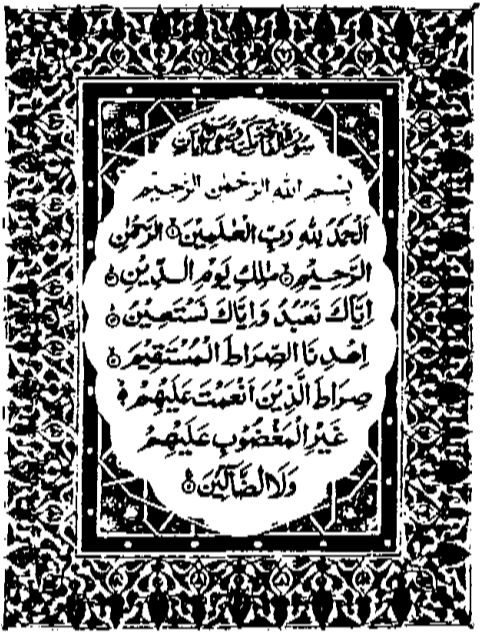 بِسْمِ اللهِ الرَّحْمٰنِ الرَّحِيْمِ
اَلْحَمْدُ لِلّٰهِ رَبِّ الْعٰلَمِيْنَ ۝ الرَّحْمٰنِ
الرَّحِيْمِ ۝ مٰلِكِ يَوْمِ الدِّيْنِ ۝
اِيَّاكَ نَعْبُدُ وَاِيَّاكَ نَسْتَعِيْنُ ۝
اِهْدِنَا الصِّرَاطَ الْمُسْتَقِيْمَ ۝
صِرَاطَ الَّذِيْنَ اَنْعَمْتَ عَلَيْهِمْ ۝
غَيْرِ الْمَغْضُوْبِ عَلَيْهِمْ
وَلَا الضَّآلِّيْنَ ۝